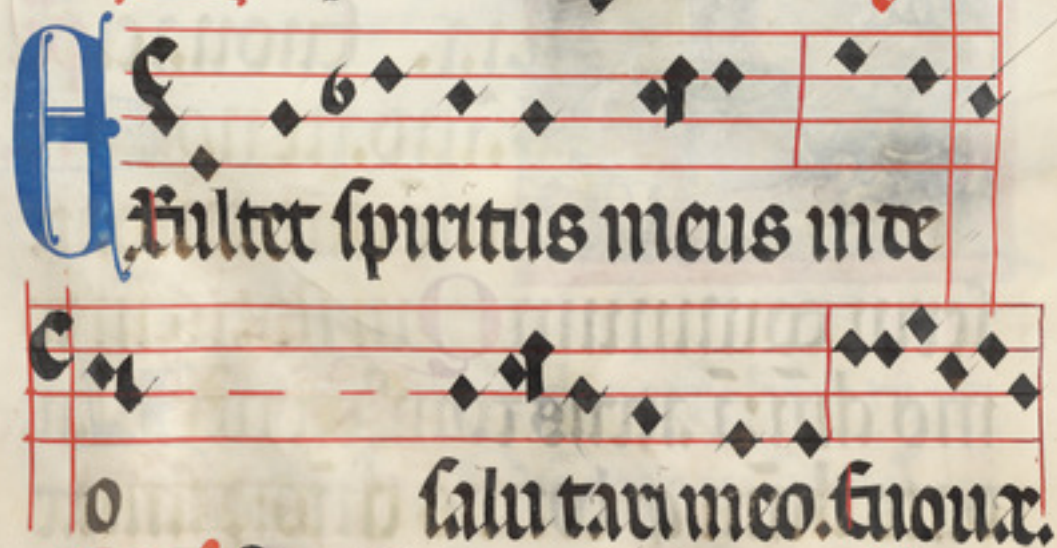 Exultet spiritus meus in de
o salutari meo. Euouae.